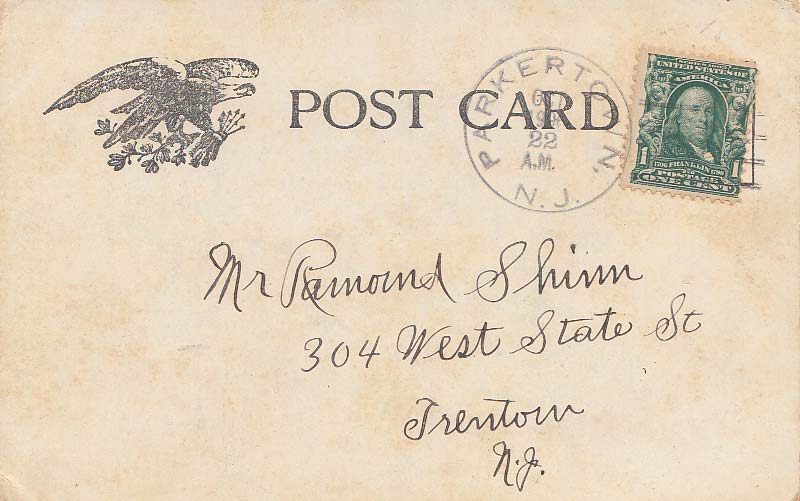 POST CARD
PARKERTOWN,
22
A.M.
N. J.
UNITED STATES OF
AMERICA
1 1
1706 FRANKLIN 1790
POSTAGE
ONE CENT
Mr Ramond Shinn
304 West State St
Trenton
N.J.